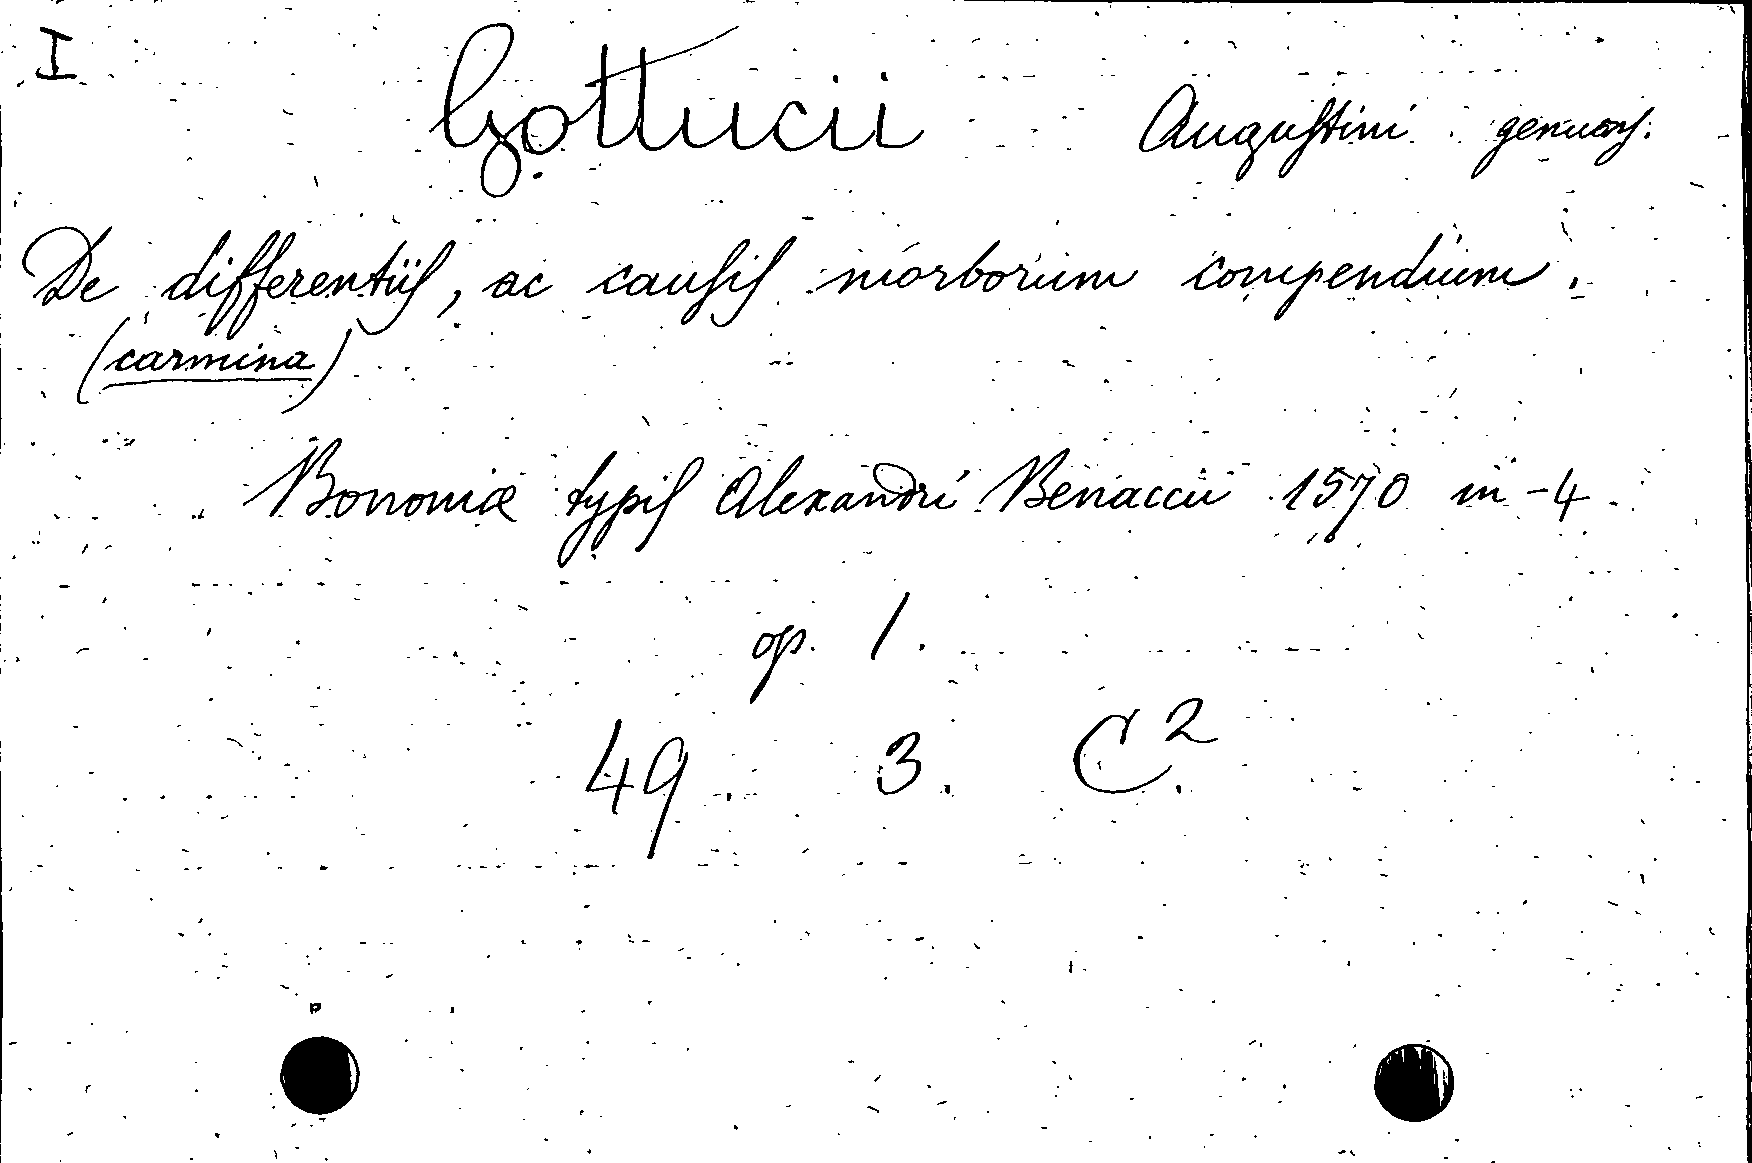 I
Gottucii Augustini genuens.
De differentijs, ac causis morborum compendium.
(carmina)
Bononiæ typis Alexandri Benaccii 1570 in-4
op. 1.
49. 3. C².